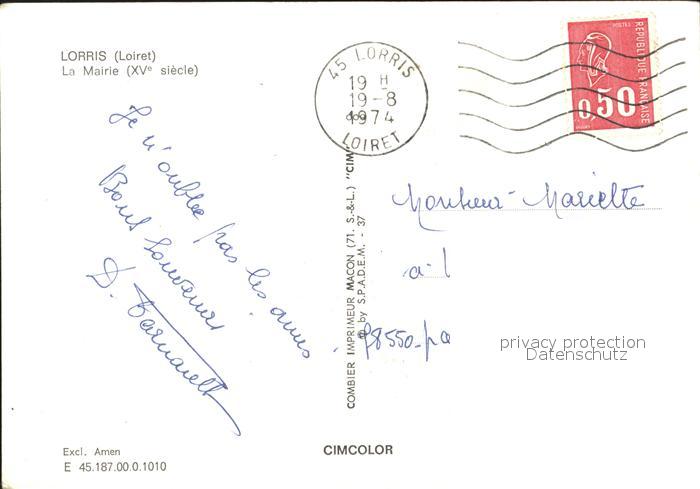 LORRIS (Loiret)
La Mairie (XVe siècle)
45 LORRIS
19 H
19-8
1974
LOIRET
POSTES
REPUBLIQUE FRANÇAISE
0,50
Je n'oublie pas les amis
Bons Souvenirs
D.
Monsieur Mariette
a-l
78550-
privacy protection
Datenschutz
COMBIER IMPRIMEUR MACON (71. S.-&-L.) "CIM
© by S.P.A.D.E.M. - 37
Excl. Amen
E 45.187.00.0.1010
CIMCOLOR